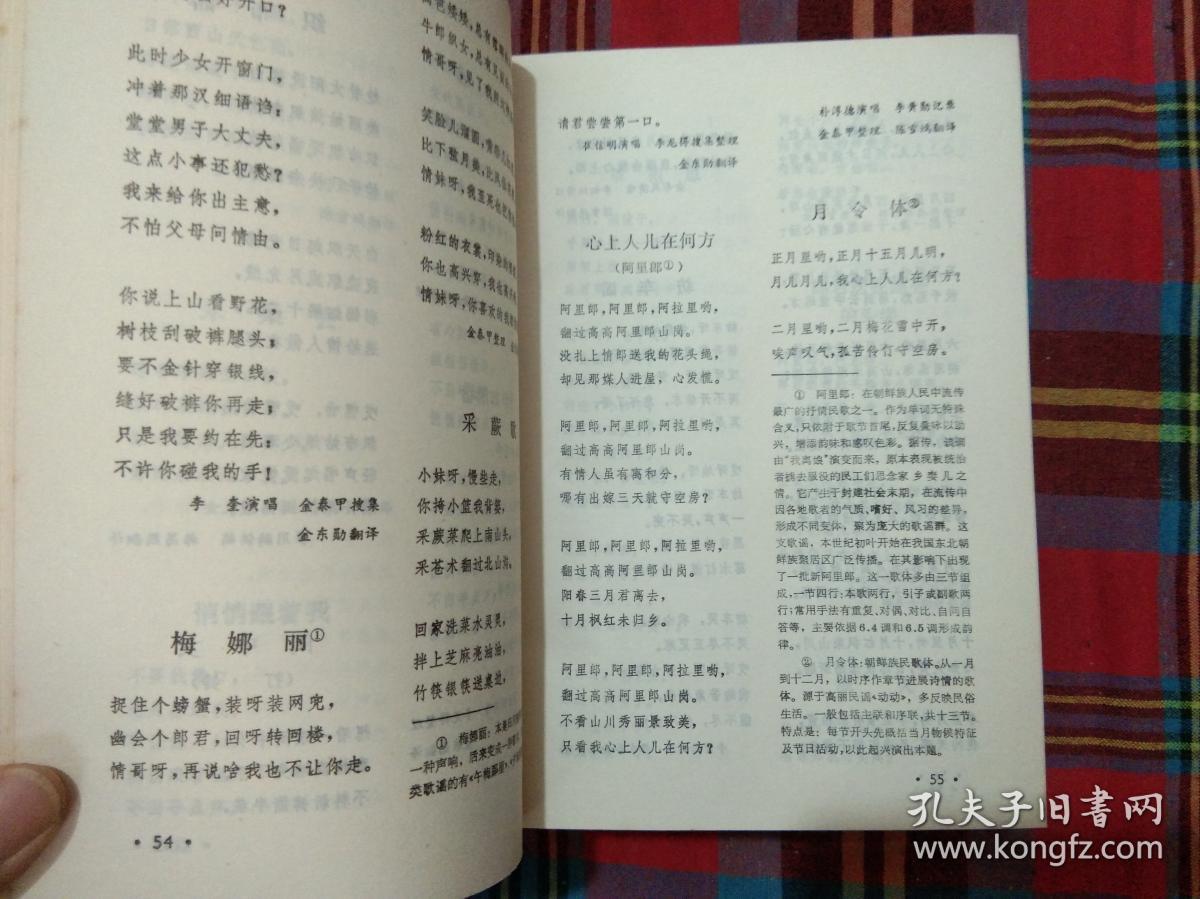 此时少女开窗门，
冲着那汉细语诌：
堂堂男子大丈夫，
这点小事还犯愁？
我来给你出主意，
不怕父母问情由。
你说上山看野花，
树枝刮破裤腿头；
要不金针穿银线，
缝好破裤你再走；
只是我要约在先：
不许你碰我的手！
李奎演唱 金泰甲搜集
金东勋翻译
梅娜丽①
捉住个螃蟹，装呀装网兜，
幽会个郎君，回呀转回楼，
情哥呀，再说啥我也不让你走。
• 54 •
牛郎织女，总有见
情哥呀，见了我
笑脸儿溜圆，
比下弦月美，比
情妹呀，我至死也把
粉红的衣裳，印
你也高兴穿，我也
情妹呀，你喜欢的我
金泰甲整理
采蕨歌
小妹呀，慢些走，
你挎小篮我背篓，
采蕨菜爬上南山头，
采苍术翻过北山沟。
回家洗菜水灵灵，
拌上芝麻亮油油，
竹筷银筷送桌边，
① 梅娜丽：本是
一种声响，后来变成一
类歌谣的有《午梅那里》、
请君尝尝第一口。
崔信明演唱 李龙得搜集整理
金东勋翻译
心上人儿在何方
（阿里郎①）
阿里郎，阿里郎，阿拉里哟，
翻过高高阿里郎山岗。
没扎上情郎送我的花头绳，
却见那媒人进屋，心发慌。
阿里郎，阿里郎，阿拉里哟，
翻过高高阿里郎山岗。
有情人虽有离和分，
哪有出嫁三天就守空房？
阿里郎，阿里郎，阿拉里哟，
翻过高高阿里郎山岗。
阳春三月君离去，
十月枫红未归乡。
阿里郎，阿里郎，阿拉里哟，
翻过高高阿里郎山岗。
不看山川秀丽景致美，
只看我心上人儿在何方？
朴淳德演唱 李黄勋记集
金泰甲整理 陈雪鸿翻译
月令体②
正月里哟，正月十五月儿明，
月儿月儿，我心上人儿在何方？
二月里哟，二月梅花雪中开，
唉声叹气，孤苦伶仃守空房。
① 阿里郎：在朝鲜族人民中流传
最广的抒情民歌之一。作为单词无特殊
含义，只依附于歌节首尾，反复叠咏以助
兴，增添韵味和感叹色彩。据传，该调
由“我离娘”演变而来，原本表现被统治
者拽去服役的民工们思念家乡妻儿之
情。它产生于封建社会末期，在流传中
因各地歌者的气质、嗜好、风习的差异，
形成不同变体，聚为庞大的歌谣群。这
支歌谣，本世纪初叶开始在我国东北朝
鲜族聚居区广泛传播。在其影响下出现
了一批新阿里郎。这一歌体多由三节组
成，一节四行：本歌两行，引子或副歌两
行；常用手法有重复、对偶、对比、自问自
答等，主要依据6.4调和6.5调形成韵
律。
② 月令体：朝鲜族民歌体。从一月
到十二月，以时序作章节进展诗情的歌
体。源于高丽民谣《动动》，多反映民俗
生活。一般包括主联和序联，共十三节。
特点是：每节开头先概括当月物候特征
及节日活动，以此起兴演出本题。
• 55 •
孔夫子旧书网
www.kongfz.com